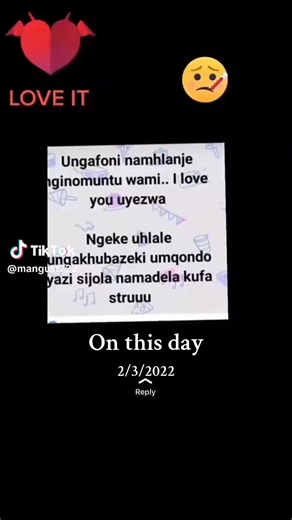 LOVE IT
Ungafoni namhlanje
nginomuntu wami.. I love
you uyezwa
Ngeke uhlale
ungakhubazeki umqondo
yazi sijola namadela kufa
struuu
TikTok
On this day
2/3/2022
Reply